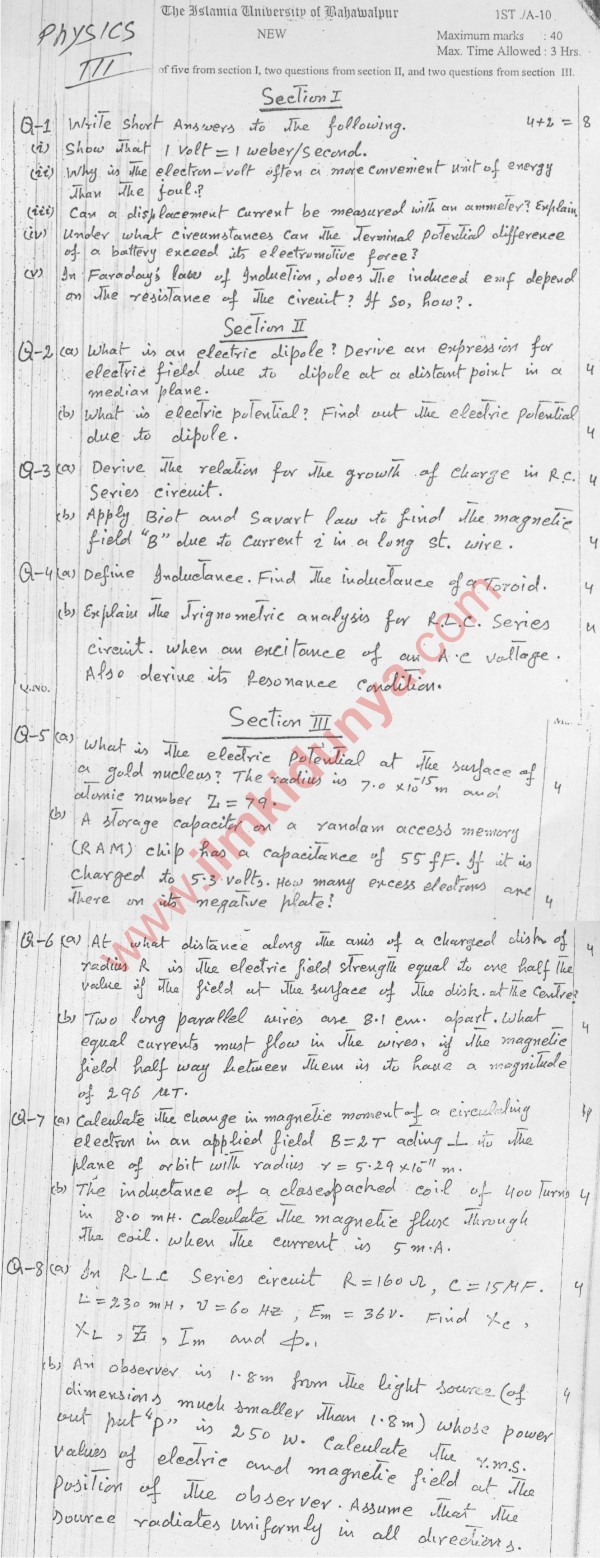 The Islamia University of Bahawalpur
1ST /A-10
Physics
III
NEW
Maximum marks : 40
Max. Time Allowed : 3 Hrs.
of five from section I, two questions from section II, and two questions from section III.
Section I
Q-1 Write Short Answers to the following. 4+2 = 8
(i) Show that 1 Volt = 1 weber/second.
(ii) Why is the electron-volt often a more convenient unit of energy
than the joul.?
(iii) Can a displacement current be measured with an ammeter? Explain
(iv) Under what circumstances can the Terminal Potential difference
of a battery exceed its electromotive force?
(v) In Faraday's law of Induction, does the induced emf depend
on the resistance of the circuit? If so, how?.
Section II
Q-2 (a) What is an electric dipole? Derive an expression for
electric field due to dipole at a distant point in a 4
median plane.
(b) What is electric potential? Find out the electric Potential
due to dipole. 4
Q-3 (a) Derive the relation for the growth of charge in R.C. 4
Series circuit.
(b) Apply Biot and Savart law to find the magnetic
field "B" due to current i in a long st. wire. 4
Q-4 (a) Define Inductance. Find the inductance of a Toroid. 4
(b) Explain the Trignometric analysis for R.L.C. Series 4
Circuit. when an excitance of an A.c voltage.
Also derive its Resonance condition.
Q.NO.
Section III
Q-5 (a) What is the electric Potential at the surface of
a gold nucleus? The radius is 7.0 x10⁻¹⁵m and 4
atomic number Z = 79.
(b) A storage capacitor on a randam access memory
(RAM) chip has a capacitance of 55 fF. If it is
charged to 5.3 volts. How many excess electrons are
there on its negative plate? 4
Q-6 (a) At what distance along the axis of a charged disk of 4
radius R is the electric field strength equal to one half the
value if the field at the surface of the disk. at the Centre?
(b) Two long parallel wires are 8.1 cm. apart. What 4
equal currents must flow in the wires, if the magnetic
field half way between them is to have a magnitude
of 296 μT.
Q-7 (a) Calculate the change in magnetic moment of a circulating 4
electron in an applied field B=2T acting ⊥ to the
plane of orbit with radius r = 5.29 x10⁻¹¹ m.
(b) The inductance of a closepached coil of 400 Turns 4
in 8.0 mH. Calculate the magnetic flux through
the coil. when the current is 5 m.A.
Q-8 (a) In R.L.C Series circuit R=160 Ω, C = 15 MF. 4
L = 230 mH, ν = 60 Hz, Em = 36V. Find Xc,
XL, Z, Im and φ.
(b) An observer is 1.8m from the light source (of 4
dimensions much smaller than 1.8m) whose power
out put "P" is 250 W. Calculate the r.m.s.
values of electric and magnetic field at the
position of the observer. Assume that the
Source radiates uniformly in all directions.
www.ilmkidunya.com